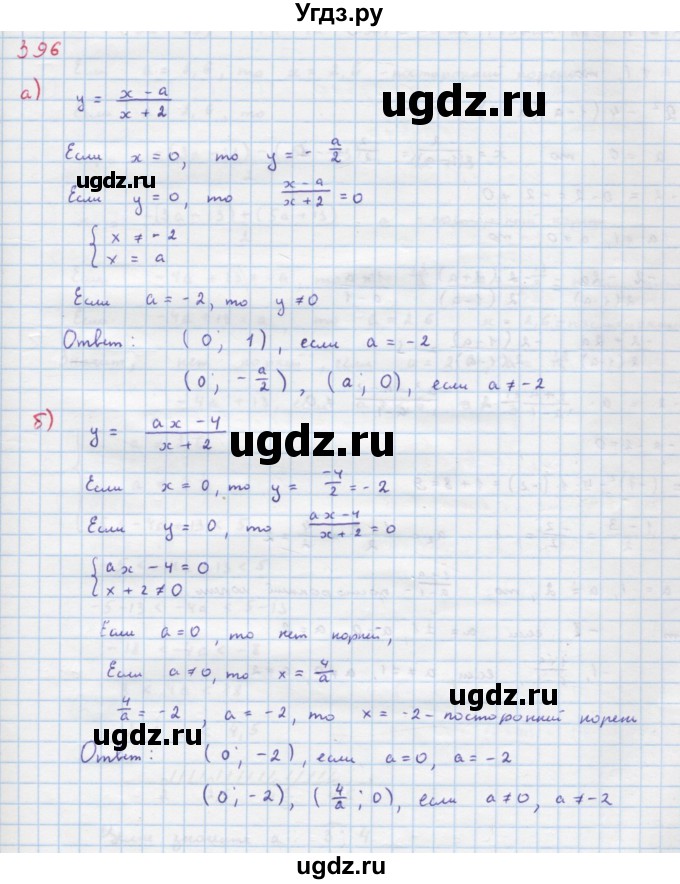 Угдз.ру
396
а) y = (x - a)/(x + 2)
ugdz.ru
Если x = 0, то y = - a/2
ugdz.ru
Если y = 0, то (x - a)/(x + 2) = 0
{ x ≠ - 2
x = a
Если a = - 2, то y ≠ 0
Ответ: (0; 1), если a = - 2
(0; - a/2), (a; 0), если a ≠ - 2
б) y = (ax - 4)/(x + 2)
ugdz.ru
Если x = 0, то y = -4/2 = - 2
Если y = 0, то (ax - 4)/(x + 2) = 0
ugdz.ru
{ ax - 4 = 0
x + 2 ≠ 0
Если a = 0, то нет корней,
Если a ≠ 0, то x = 4/a
ugdz.ru
4/a = - 2, a = - 2, то x = - 2 - посторонний корень
ugdz.ru
Ответ: (0; - 2), если a = 0, a = - 2
(0; - 2), (4/a; 0), если a ≠ 0, a ≠ - 2
ugdz.ru
ugdz.ru